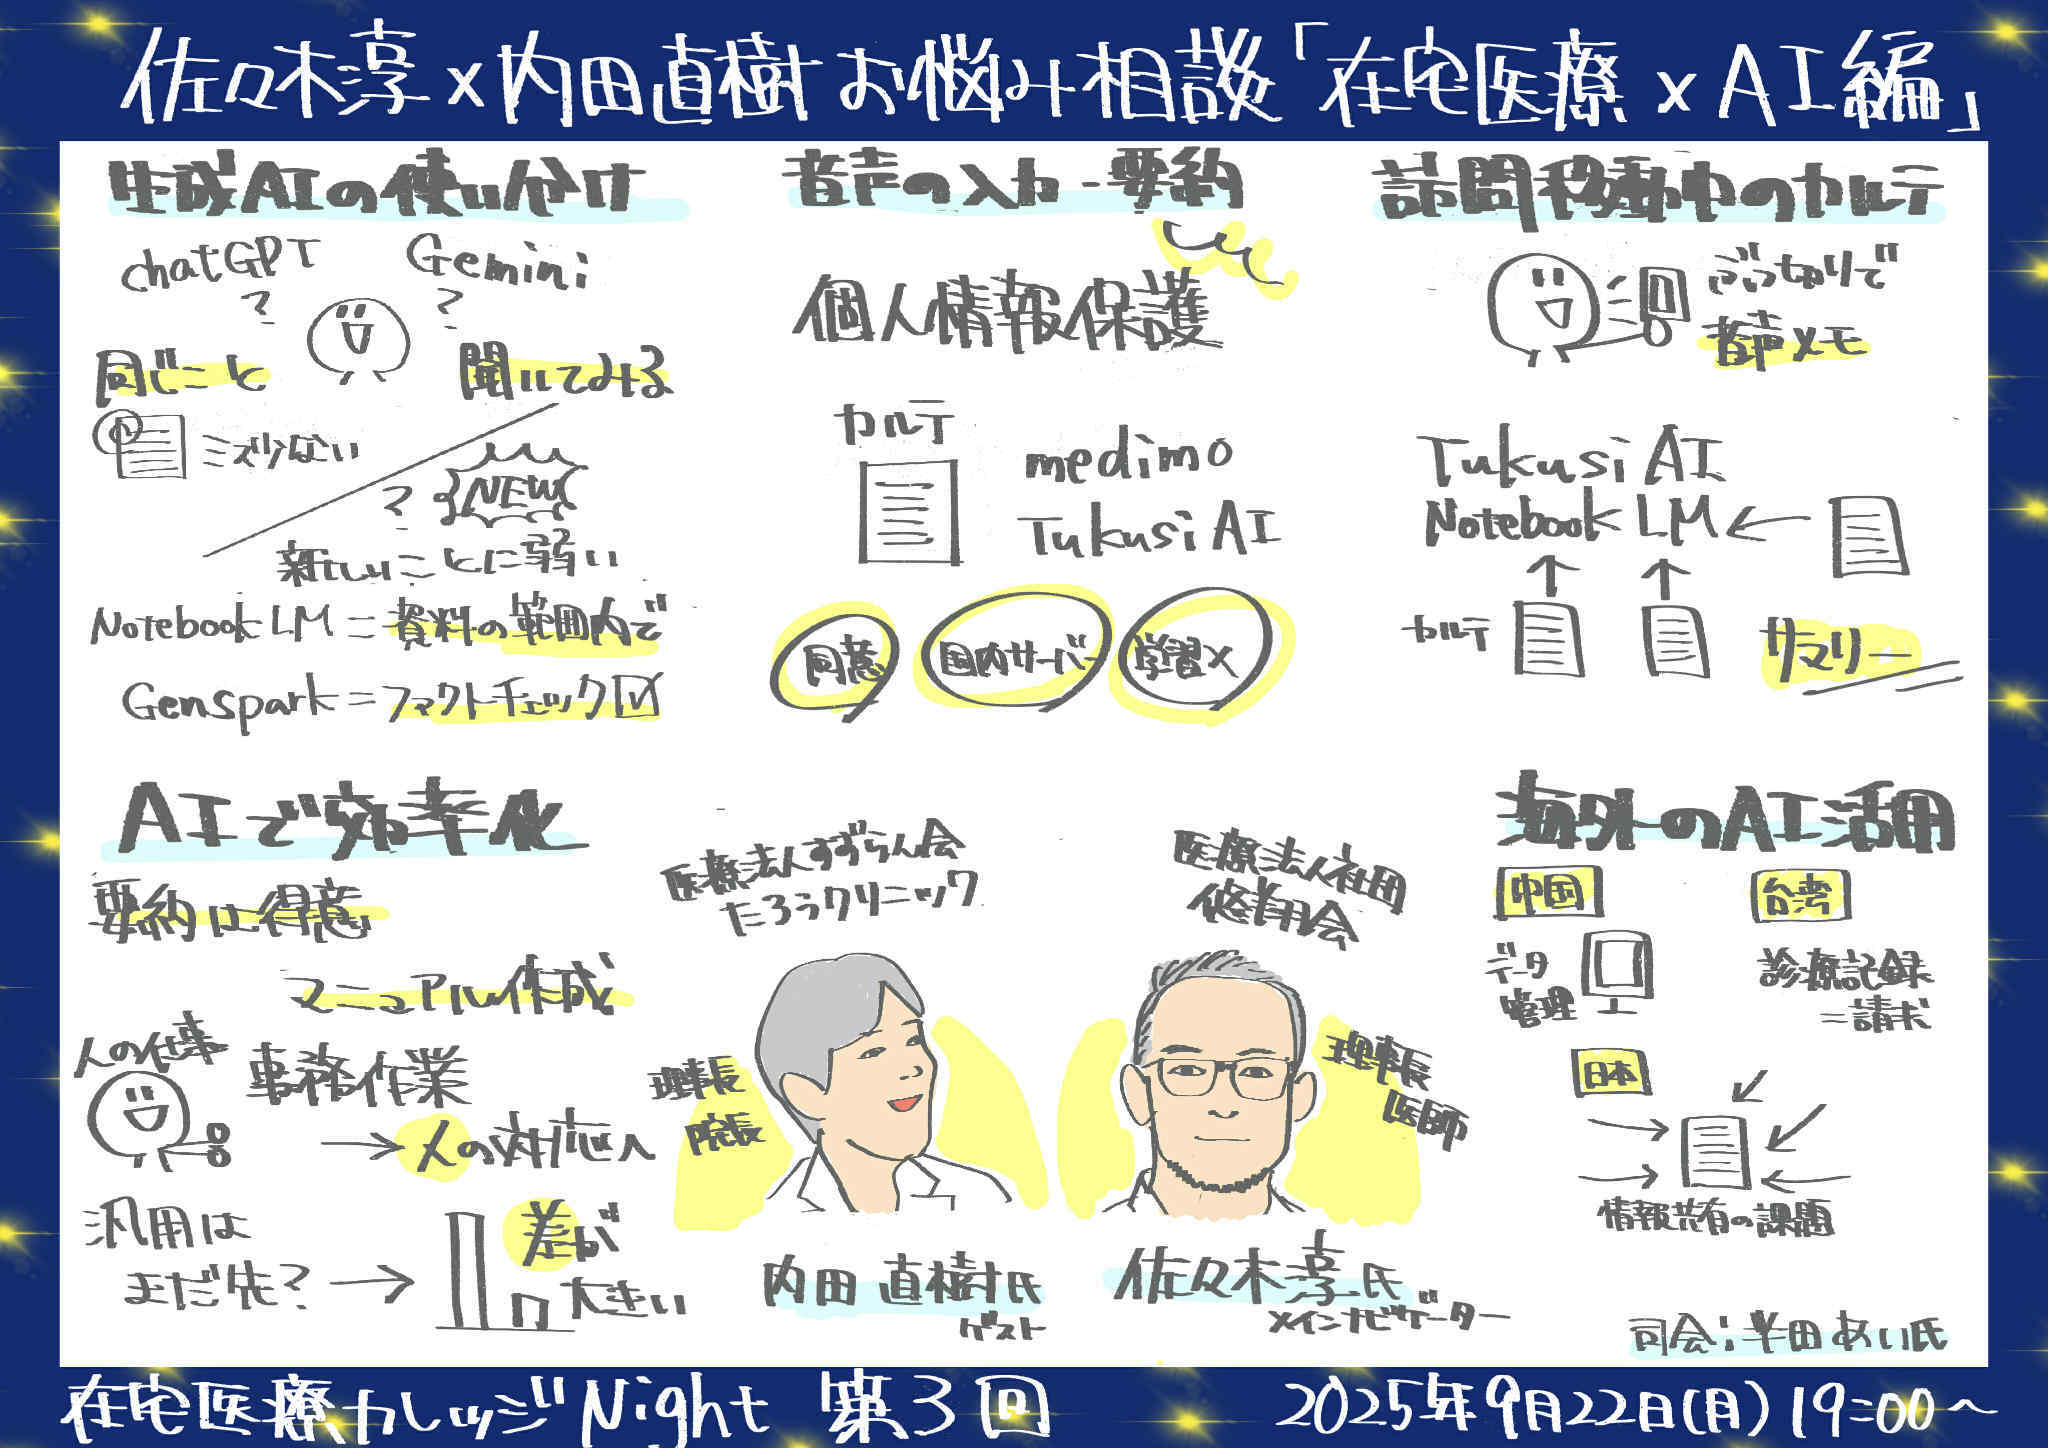 佐々木淳×内田直樹 お悩み相談「在宅医療×AI編」
生成AIの使い分け
chatGPT
?
Gemini
?
同じこと
聞いてみる
ミズ少ない
?
NEW
新しいことに弱い
Notebook LM=資料の範囲内で
Genspark=ファクトチェック
音声の入力・要約
個人情報保護
カルテ
medimo
Tukusi AI
同意
国内サーバー
学習×
訪問移動中のカルテ
ぶっ切りで
音声メモ
Tukusi AI
Notebook LM
カルテ
サマリー
AIで効率化
要約は得意
マニュアル作成
人の仕事
事務作業
→人の対応へ
汎用は
まだ先?
→
差が
大きい
医療法人すずらん会
たろうクリニック
理事長
院長
内田 直樹氏
ゲスト
医療法人社団
悠翔会
理事長
医師
佐々木淳氏
メインナビゲーター
海外のAI活用
中国
データ
管理
台湾
診療記録
=請求
日本
情報共有の課題
司会:半田あい氏
在宅医療カレッジNight 第3回
2025年9月22日(月)19:00〜